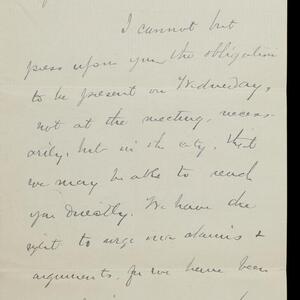 I cannot but
press upon you the obligation
to be present on Wednesday,
not at the meeting, neces-
sarily, but in the city, that
we may be able to reach
you directly. We have the
right to urge our claims &
arguments, for we have been